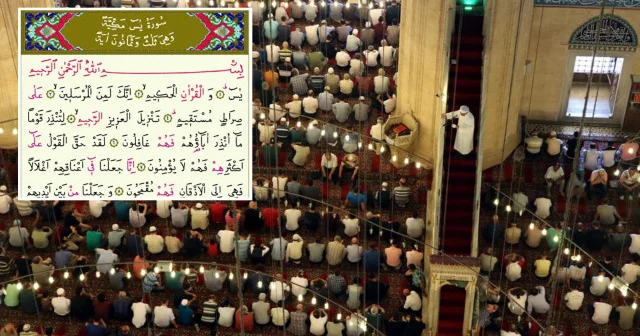 سُورَةُ يٰسٓ مَكِّيَّةٌ
وَهِيَ ثَلٰثٌ وَثَمَانُونَ اٰيَةً
بِسْمِ اللّٰهِ الرَّحْمٰنِ الرَّحِيمِ
يٰسٓ ۝ وَالْقُرْاٰنِ الْحَكِيمِ ۝ اِنَّكَ لَمِنَ الْمُرْسَلِينَ ۝ عَلٰى
صِرَاطٍ مُسْتَقِيمٍ ۝ تَنْزِيلَ الْعَزِيزِ الرَّحِيمِ ۝ لِتُنْذِرَ قَوْمًا
مَٓا اُنْذِرَ اٰبَٓاؤُ۬هُمْ فَهُمْ غَافِلُونَ ۝ لَقَدْ حَقَّ الْقَوْلُ عَلٰٓى
اَكْثَرِهِمْ فَهُمْ لَا يُؤْمِنُونَ ۝ اِنَّا جَعَلْنَا فِٓي اَعْنَاقِهِمْ اَغْلَالًا
فَهِيَ اِلَى الْاَذْقَانِ فَهُمْ مُقْمَحُونَ ۝ وَجَعَلْنَا مِنْ بَيْنِ اَيْدِيهِمْ